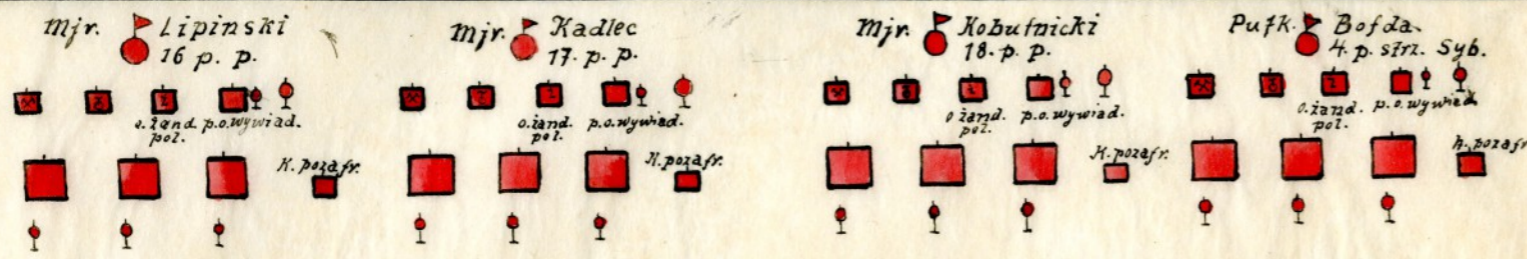 Mjr. Lipinski
16 p. p.
o. żand. p.o. wywiad.
pol.
K. pozafr.
Mjr. Kadlec
17. p. p.
o. żand. p.o. wywiad.
pol.
K. pozafr.
Mjr. Kobutnicki
18. p. p.
o żand. p.o. wywiad.
pol.
K. pozafr.
Pułk. Bofda.
4. p. strz. Syb.
o. żand. p.o. wywiad.
pol.
k. pozafr